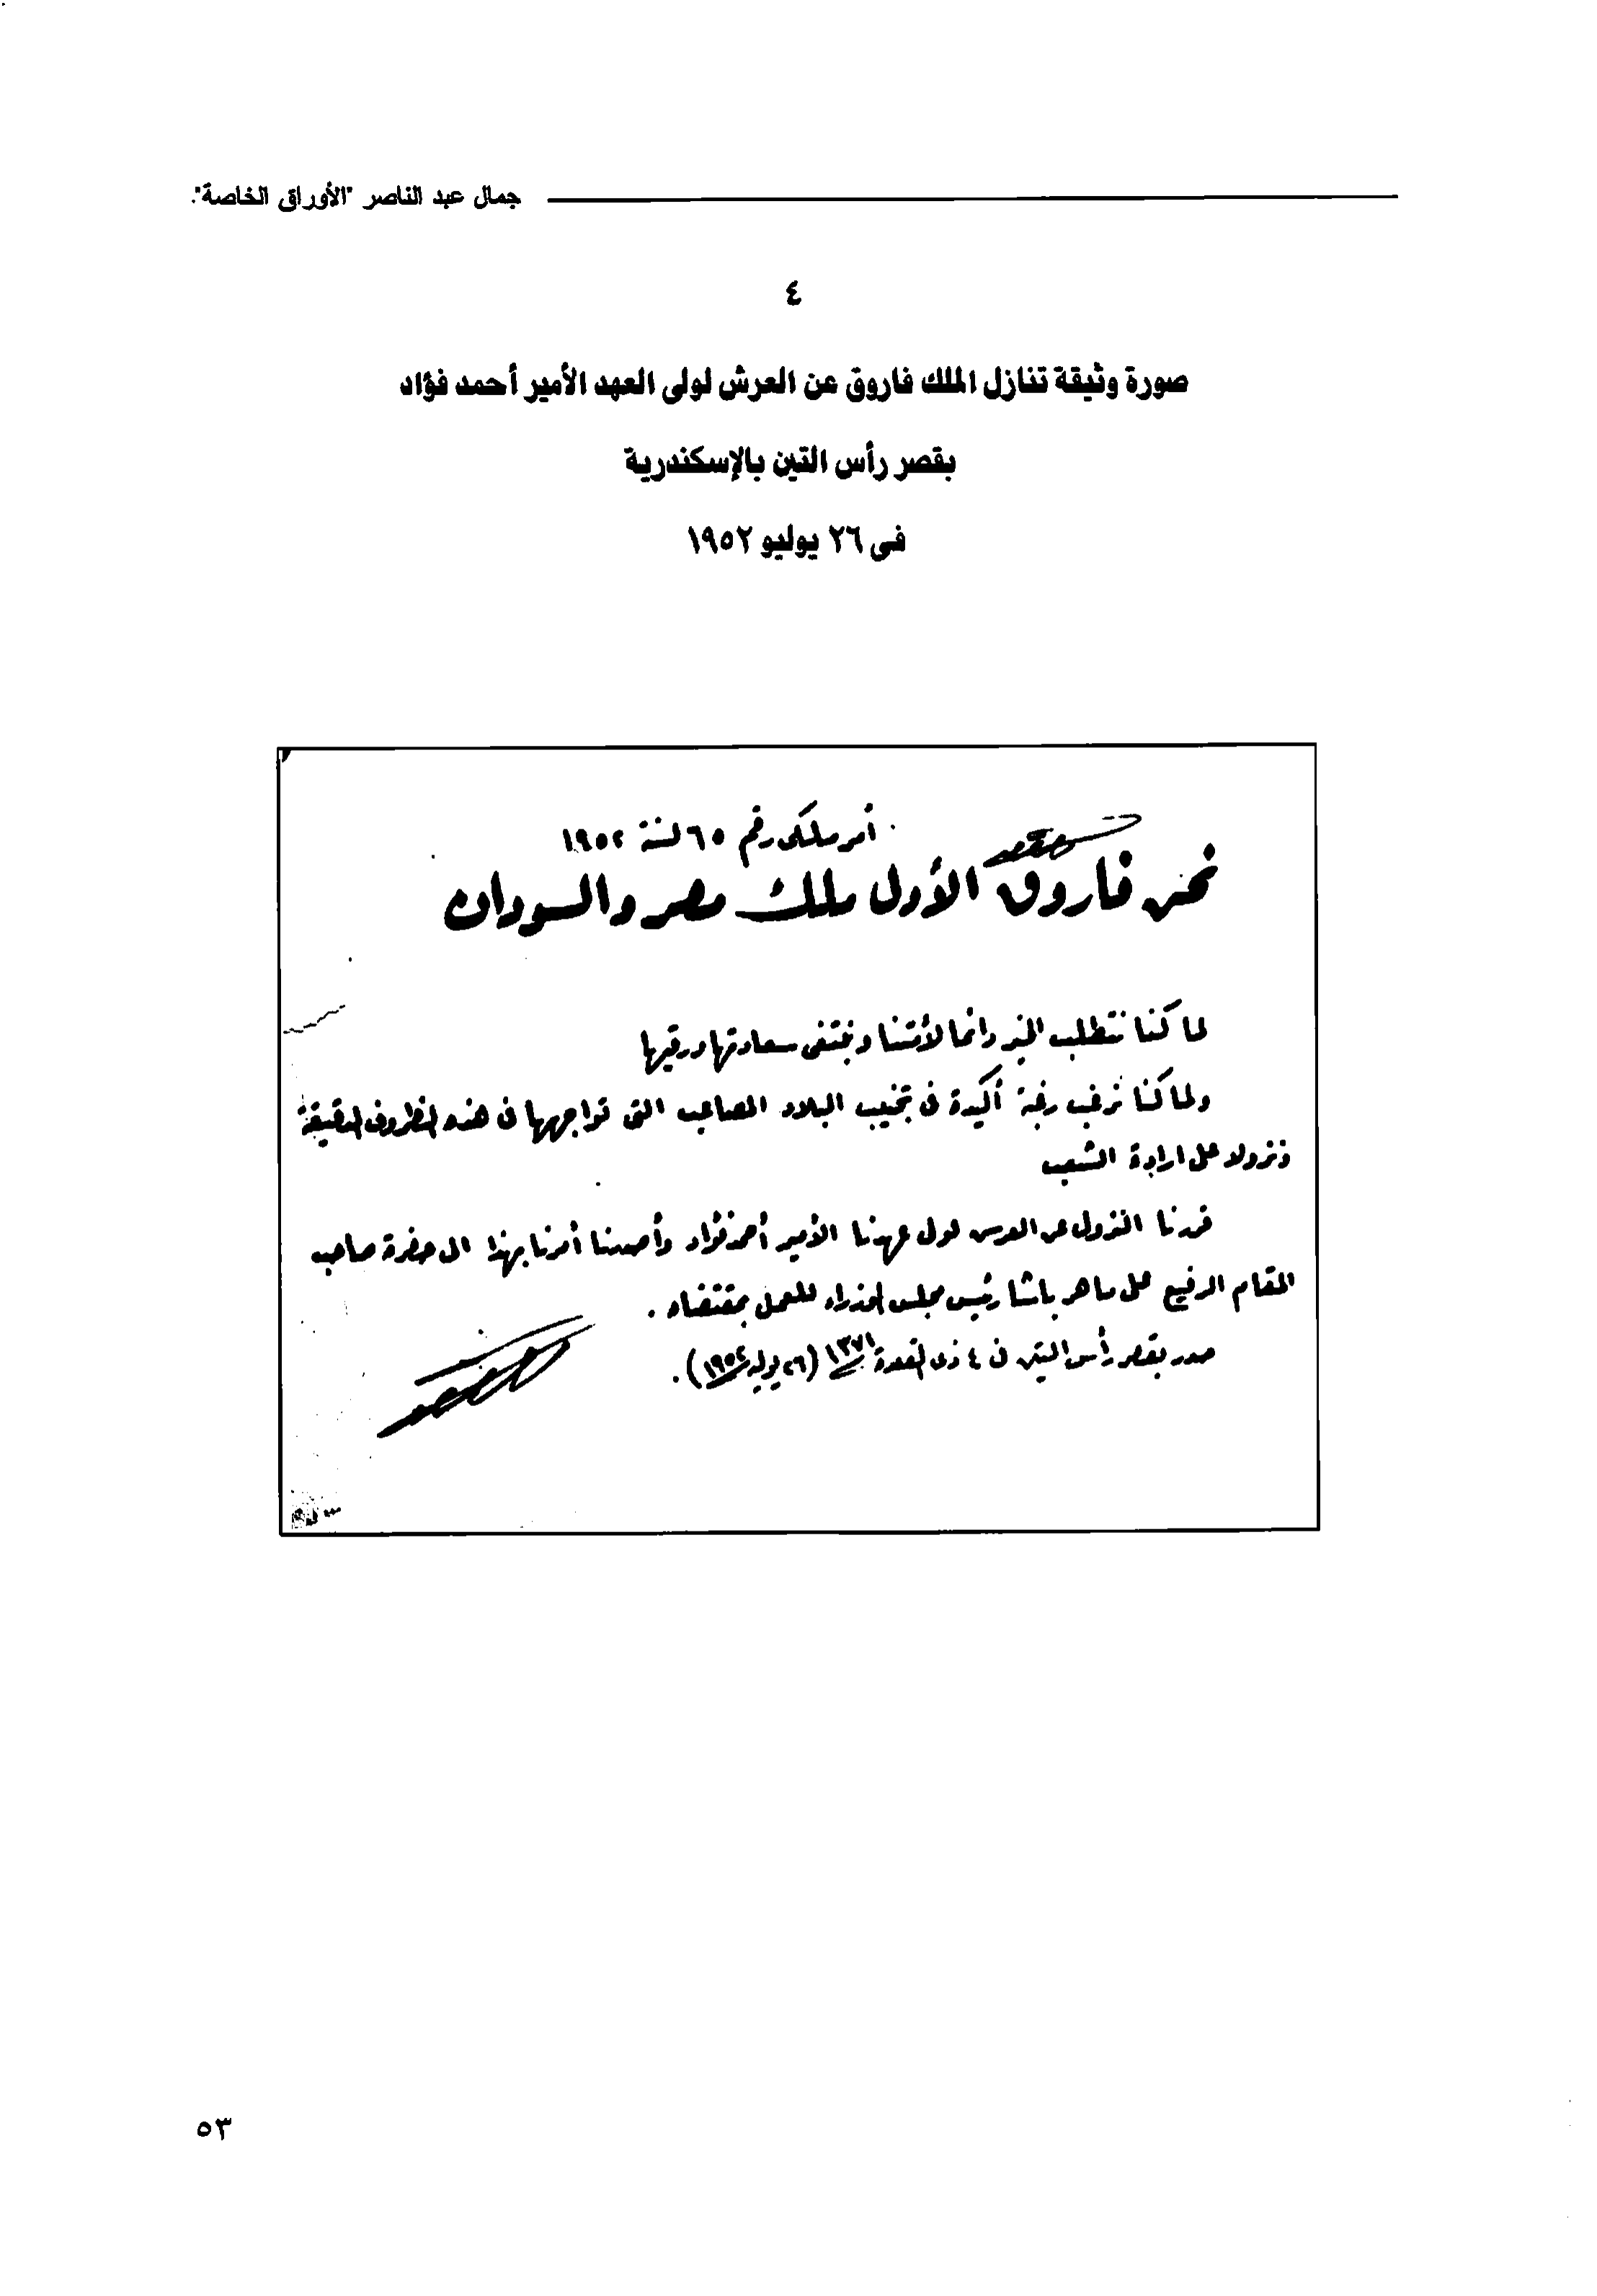 جمال عبد الناصر "الأوراق الخاصة".
٤
صورة وثيقة تنازل الملك فاروق عن العرش لولى العهد الأمير أحمد فؤاد
بقصر رأس التين بالإسكندرية
فى ٢٦ يوليو ١٩٥٢
أمر ملكى رقم ٦٥ لسنة ١٩٥٢
نحن فاروق الأول ملك مصر والسودان
لما كنا نتطلب الخير دائما لأمتنا ونبتغى سعادتها ورقيها
ولما كنا نرغب رغبة أكيدة فى تجنيب البلاد المصاعب التى تواجهها فى هذه الظروف الدقيقة
ونزولا على ارادة الشعب
قررنا النزول عن العرش لولى عهدنا الأمير أحمد فؤاد وأصدرنا أمرنا بهذا الى حضرة صاحب
المقام الرفيع على ماهر باشا رئيس مجلس الوزراء للعمل بمقتضاه .
صدر بقصر رأس التين فى ٤ ذى القعدة ١٣٧١ (٢٦ يوليه ١٩٥٢) .
٥٣